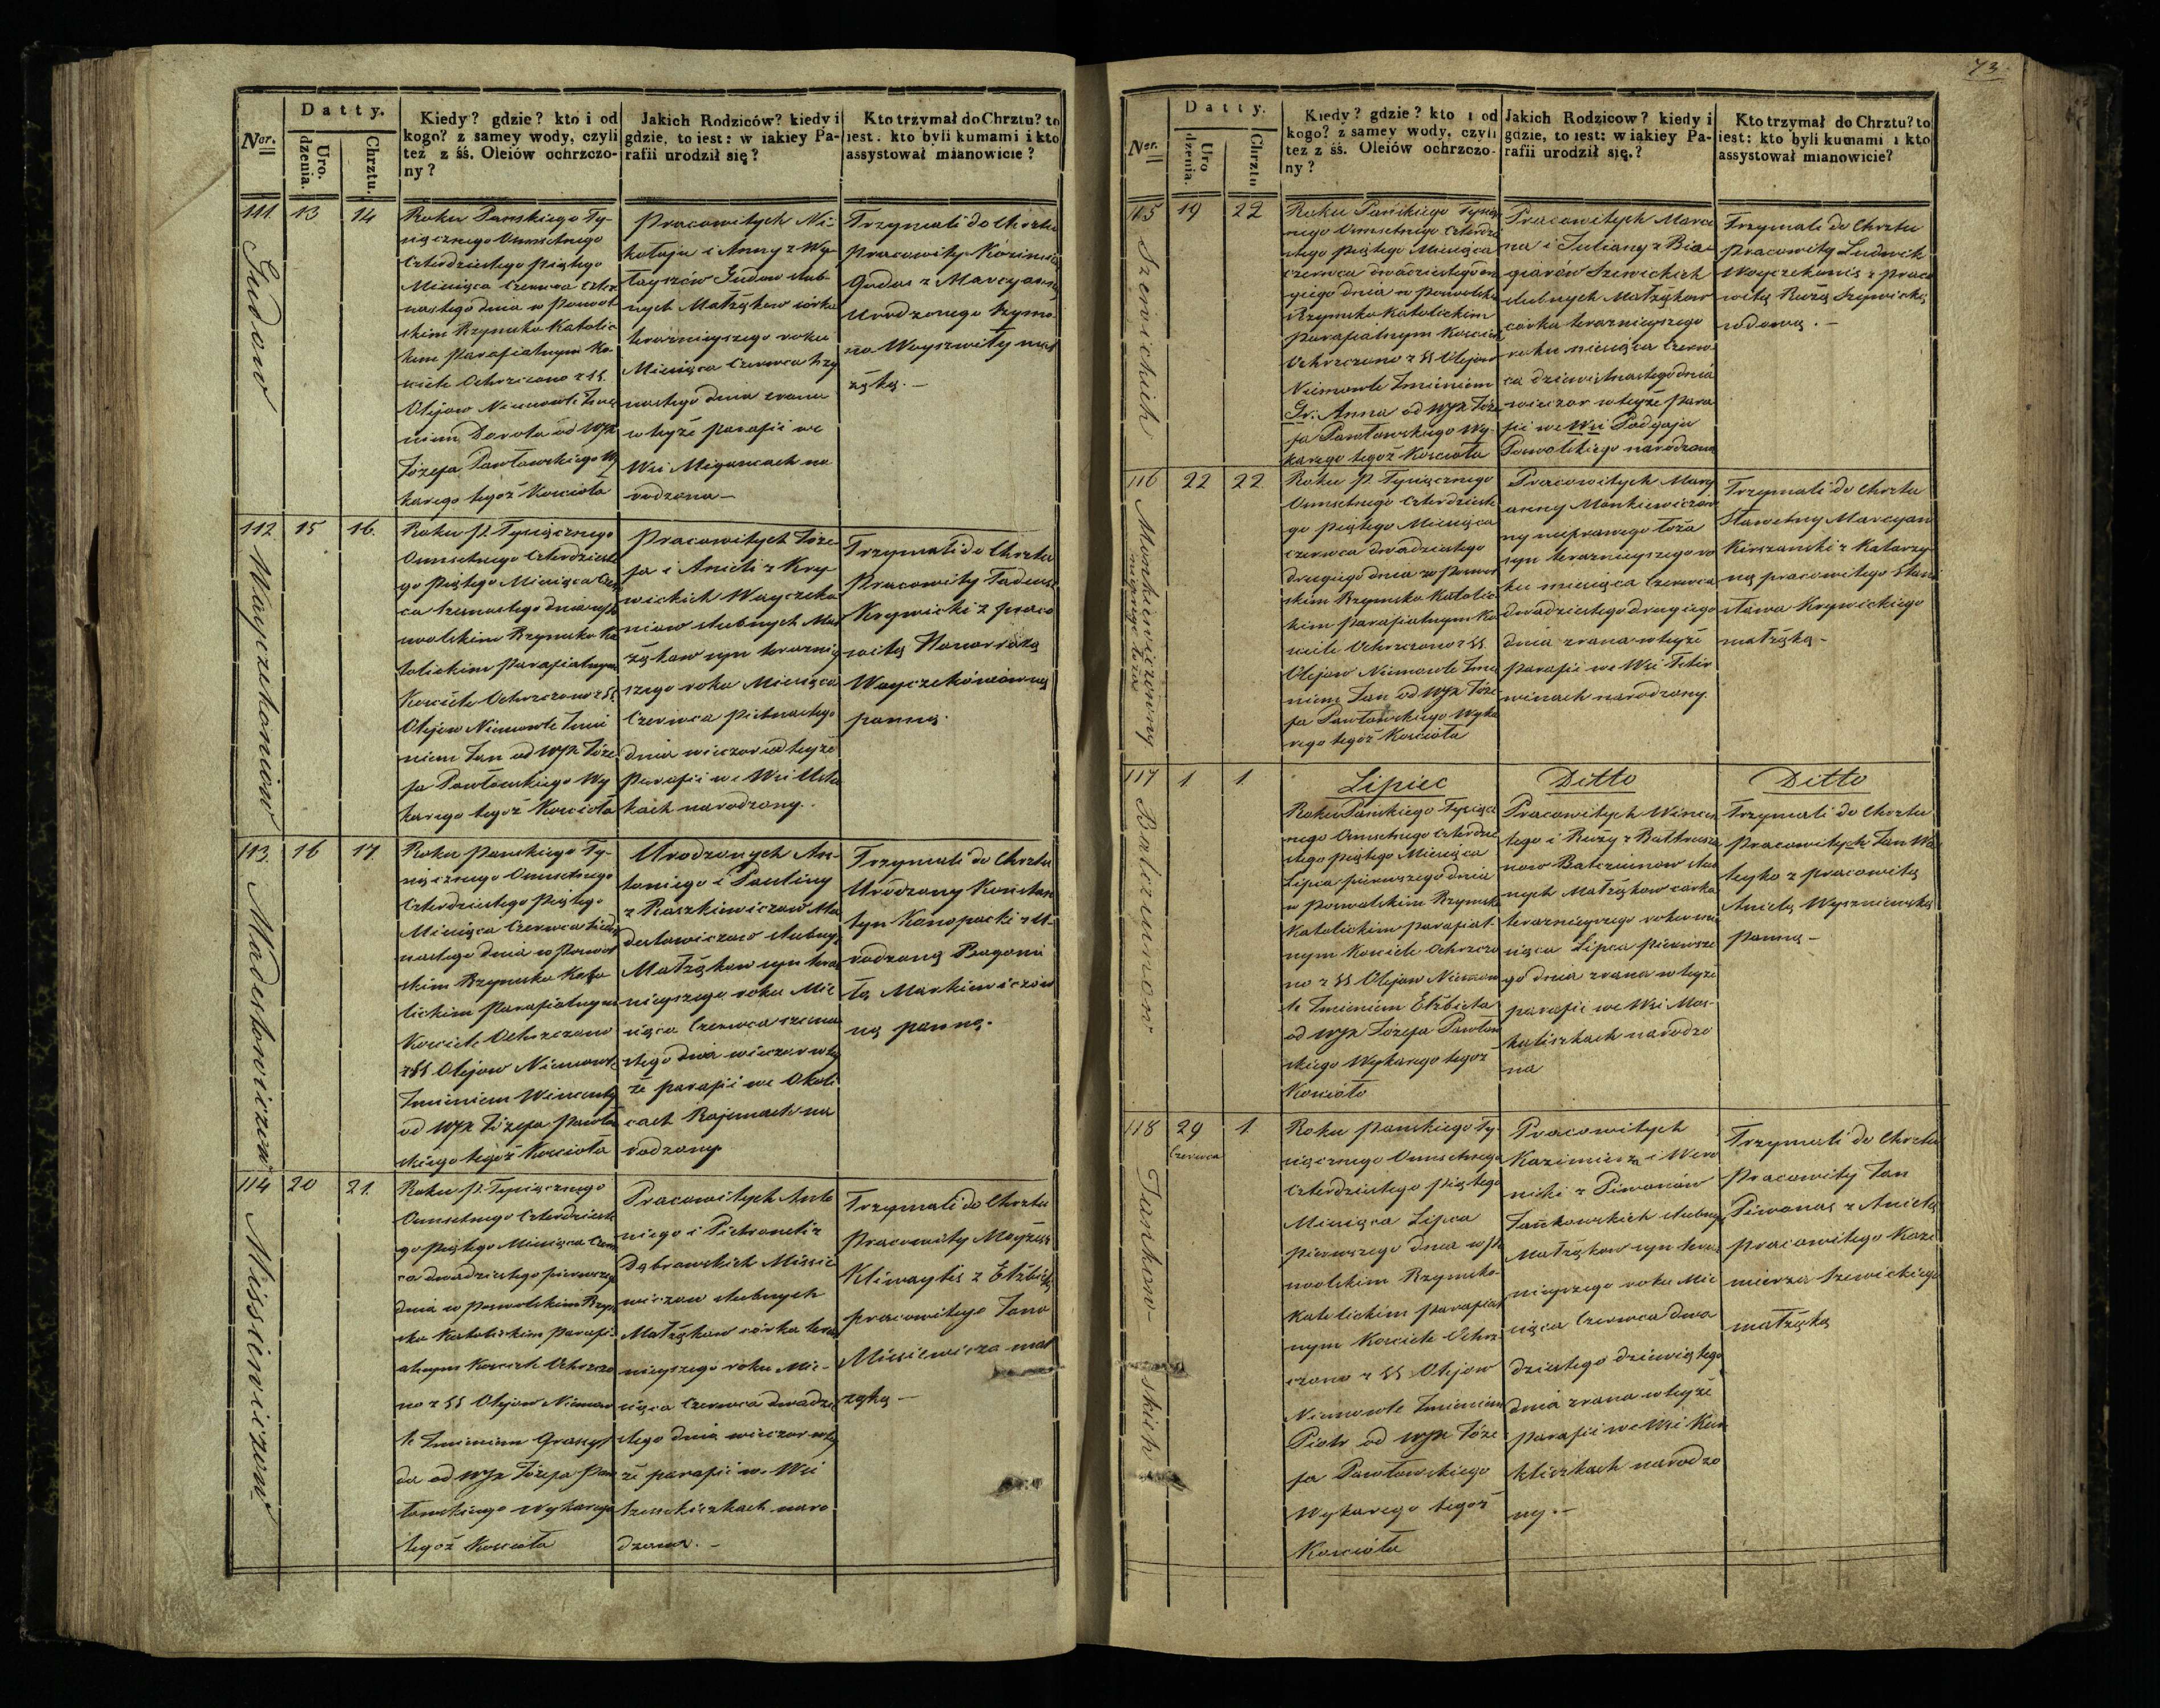 Datty.
Ner.
Uro-
dzenia.
Chrztu.
Kiedy? gdzie? kto i od
kogo? z samey wody, czyli
też z śś. Oleiów ochrzczo-
ny?
Jakich Rodziców? kiedy i
gdzie, to iest: w iakiey Pa-
rafii urodził się?
Kto trzymał do Chrztu? to
iest. kto byli kumami i kto
assystował mianowicie?
111
13
14
Gudow
Roku Panskiego Ty-
siącznego Osmsetnego
Czterdziestego piątego
Miesiąca Czerwca Czter
nastego dnia w Powol
skim Rzymsko Katolic
kim Parafialnym Ko-
sciele Ochrzczono z SS.
Olejow Niemowle Imie
niem Dorota od WJX
Józefa Pawłowskiego Wy
karego tegoż Kościoła
Pracowitych Mi-
kołaja i Anny z Wy-
Gudow slub-
nych Małżąkow córka
teraznieyszego roku
Miesiąca Czerwca trzy
nastego dnia zrana
w teyże parafii we
Wsi Migancach na
rodzona —
Trzymali do Chrztu
Pracowity Kazimierz
Gudas z Marcyanną
Urodzonego Szymo-
na Woyszwiły mał
żąką. —
112
15
16.
Wayczekoniow
Roku P. Tysiącznego
Osmsetnego Czterdzieste
go Piątego Miesiąca Czer
ca szesnastego dnia w Po
wolskim Rzymsko Ka
tolickim Parafialnym
Kosciele Ochrzczono z SS.
Olejow Niemowle Imie
niem Jan od WJX Józe
fa Pawłowskiego Wy
karego tegoż Kosciola
Pracowitych Józe
fa i Anieli z Kry
wickich Wayczeko
niow slubnych Mał
żąkow syn teraznie
szego roku Miesiąca
Czerwca Pietnastego
dnia wieczor w teyże
parafii we Wsi Usta
kach narodzony.
Trzymali do Chrztu
Pracowity Tadeusz
Krywicki z praco
witą Honorratą
Wayczekóniówną
panną.
113.
16
17
Madestowiczow
Roku Panskiego Ty-
siącznego Osmsetnego
Czterdziestego Piątego
Miesiąca Czerwca Siedm
nastego dnia w Powol
skim Rzymsko Kato
lickim Parafialnym
Kosciele Ochrzczono
z SS Olejow Niemowle
Imieniem Wincenty
od WJX Józefa Pawło
skiego tegoż Kosciola
Urodzonych An-
toniego i Pauliny
z Raszkiewiczow Ma
destowiczow slubnych
Małżąkow syn teraz
nieyszego roku Mie
siąca Czerwca szesna
stego dnia wieczor w tey
że parafii we Okoli
cach Rajunach na
rodzony
Trzymali do Chrztu
Urodzony Konstan
tyn Konopacki z U-
rodzoną Pragoni
łą Markiewiczów
ną panną.
114
20
21.
Missiewiczow
Roku P. Tysiącznego
Osmsetnego Czterdzieste
go Piątego Miesiąca Czerw
ca dwadziestego pierwszego
dnia w Powolskim Rzym
sko Katolickim Parafi-
alnym Kosciele Ochrzczo
no z SS Olejow Niemow
le Imieniem Graszyl
da od WJX Józefa Paw
łowskiego Wykarego
tegoż Kosciola
Pracowitych Anto
niego i Pietroneli z
Dąbrowskich Missie
wiczow slubnych
Małżąkow córka teraz
nieyszego roku Mie-
siąca Czerwca dwadzie
stego dnia wieczor w tey
że parafii we Wsi
narо
dzona. —
Trzymali do Chrztu
Pracowity Moyżesz
Kliwaytis z Elżbietą
pracowitego Jana
Missiewicza mał
żąką —
73.
Datty.
Ner.
Uro
dzenia.
Chrztu
Kiedy? gdzie? kto i od
kogo? z samey wody, czyli
też z śś. Oleiów ochrzczo-
ny?
Jakich Rodzicow? kiedy i
gdzie, to iest: w iakiey Pa-
rafii urodził się.?
Kto trzymał do Chrztu? to
iest: kto byli kumami i kto
assystował mianowicie?
115
19
22
Szewickich
Roku Pańskiego Tysiącz
nego Osmsetnego Czterdzie
stego Piątego Miesiąca
Czerwca dwadziestego dru
giego dnia w Powolskim
Rzymsko Katolickim
Parafialnym Kosciele
Ochrzczono z SS Olejow
Niemowle Imieniem
Anna od WJX Józe
fa Pawłowskiego Wy-
karego tegoż Kosciola
Pracowitych Marci
na i Julianny z Bia-
Szewickich
slubnych Małżąkow
córka teraznieyszego
roku miesiąca Czerw-
ca dziewietnastego dnia
wieczor w teyże para
fii we Wsi Podgaju
Powolskiego narodzona
Trzymali do Chrztu
Pracowity Ludwik
Woyczekonis z Praco
witą Rożą Szewicką
wdową. —
116
22
22
Monkiewiczowny
nieprawego łoża
Roku P. Tysiącznego
Osmsetnego Czterdzieste
go Piątego Miesiąca
Czerwca dwadziestego
drugiego dnia w Powol
skim Rzymsko Katolic
kim Parafialnym Ko
sciele Ochrzczono z SS.
Olejow Niemowle Imie
niem Jan od WJX Józe
fa Pawłowskiego Wyka
rego tegoż Kosciola
Pracowitych Mary
anny Monkiewiczow
ny nieprawego łoża
syn teraznieyszego ro
ku miesiąca Czerwca
dwadziestego drugiego
dnia zrana w teyże
parafii we Wsi Tetir
winach narodzony.
Trzymali do Chrztu
Sławetny Marcyan
Kirszanski z Katarzy-
ną pracowitego Stani
sława Krywickiego
małżąką —
117
1
1
Balcziunow
Lipiec
Roku Pańskiego Tysiącz
nego Osmsetnego Czterdzie
stego Piątego Miesiąca
Lipca pierwszego dnia
w Powolskim Rzymsko
Katolickim Parafial-
nym Kosciele Ochrzczo
no z SS Olejow Niemow
le Imieniem Elżbieta
od WJX Józefa Pawłow
skiego Wykarego tegoż
Kosciola
Ditto
Pracowitych Wincen
tego i Roży z Baltrusza
now Balcziunow slub
nych Małżąkow córka
teraznieyszego roku mie
siąca Lipca Pierwsze
go dnia zrana w teyże
parafii we Wsi Mos-
kaliszkach narodzo
na
Ditto
Trzymali do Chrztu
Pracowitych Jan Wa
leyko z pracowitą
Anielą Wyszniewską
panną —
118
29
Czerwca
1
Jankow-
skich
Roku Panskiego Ty-
siącznego Osmsetnego
Czterdziestego Piątego
Miesiąca Lipca
Pierwszego dnia w Po
wolskim Rzymsko-
Katolickim Parafial
nym Kosciele Ochrz-
czono z SS Olejow
Niemowle Imieniem
Piotr od WJX Józe
fa Pawłowskiego
Wykarego tegoż
Kosciola
Pracowitych
Kazimierza i Wero
niki z Piwonów
Jankowskich slubnych
Małżąkow syn teraz
nieyszego roku Mie
siąca Czerwca dwa
dziestego dziewiątego
dnia zrana w teyże
parafii we Wsi Kun
kliszkach narodzo
ny. —
Trzymali do Chrztu
Pracowity Jan
Piwonas z Anielą
pracowitego Kazi
mierza Szewickiego
małżąką